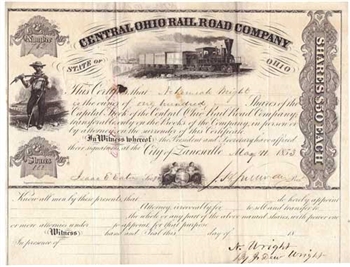 Number
CENTRAL OHIO RAIL ROAD COMPANY
STATE OF OHIO
SHARES $50 EACH
This Certifies that Nehemiah Wright
is the owner of one hundred Shares of the
Capital Stock of the Central Ohio Rail Road Company,
transferable on the books of the Company, in person or
by attorney on the surrender of this Certificate
In Witness whereof the President and Secretary have affixed
their signatures, at the City of Zanesville May 11 1853
Shares
100
Secy
Know all men by these presents, that
Attorney, irrevocably for to sell and transfer
the whole or any part of the above named shares, with power one
or more attorneys under for that purpose
Witness hand and Seal this day of 18
In presence of
N. Wright
By Wright